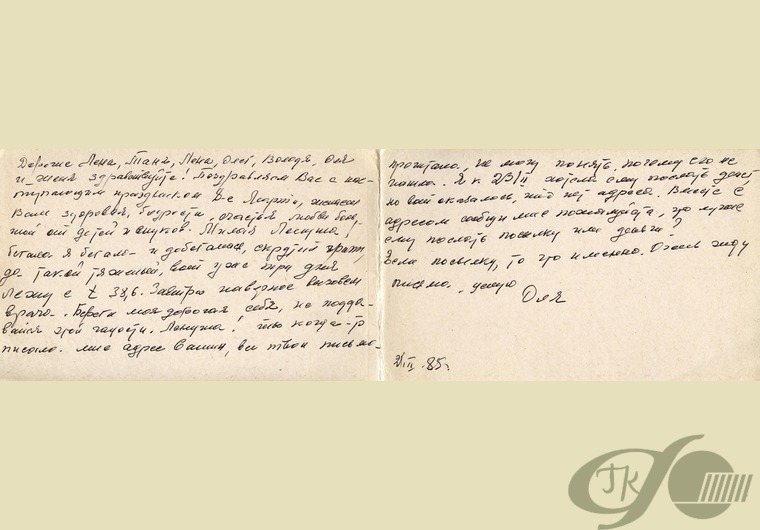 Дорогие Лена, Таня, Лена, Олег, Володя, Оля
и Женя здравствуйте! Поздравляем Вас с нас-
тупающим праздником 8-е Марта, желаем
Вам здоровья, бодрости, счастья любви боль
шой от детей и внуков. Милая Леночка!
бегала я бегала и добегалась, грипп,
да такой тяжелый, вот уже три дня
лежу с t 38,6. Завтра наверное вызовем
врача. Береги моя дорогая себя, не подда-
вайся этой гадости. Леночка! ты когда-то
писала мне адрес Вашин, все твои письма-
прочитала, не могу понять, почему его не
нашла. Я к 23/II хотела ему послать
но вот оказалось, что нет адреса. Вместе с
адресом сообщи мне пожалуйста, что лучше
ему послать посылку или деньги?
Если посылку, то что именно. Очень жду
письма, целую
Оля
2/III.85г.
ГК